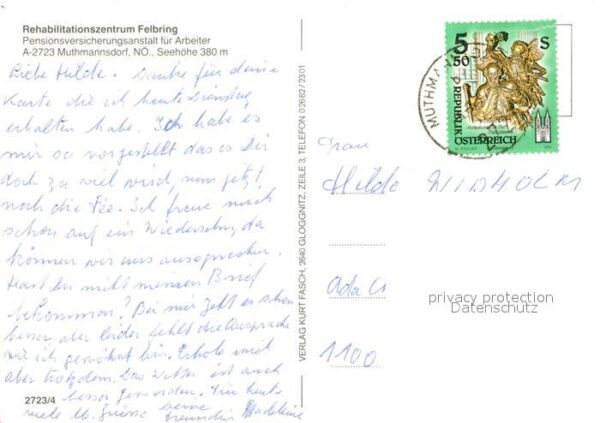 Rehabilitationszentrum Felbring
Pensionsversicherungsanstalt für Arbeiter
A-2723 Muthmannsdorf, NÖ., Seehöhe 380 m
Liebe Hilde. Danke für deine
Karte die ich heute Dienstag
erhalten habe. Ich habe es
mir so vorgestellt das es Dir
doch zu viel wird, nun jetzt
noch die
Ich freue mich
schon auf ein Wiedersehn, da
können wir uns aussprechen.
Hast du nicht meinen Brief
bekommen? Bei mir geht es schon
besser, aber leider fehlt die Aussprache
wie ich gewöhnt bin. Erhole mich
aber trotzdem. Das Wetter ist auch
besser geworden. Für heute
viele lb. Grüsse deine
Freundin Madeleine
2723/4
VERLAG KURT FASCH, 2640 GLOGGNITZ, ZEILE 3, TELEFON 0 26 62 / 23 01
5 50 S
REPUBLIK
ÖSTERREICH
MUTHMA
Frau
Hilde
1100
privacy protection
Datenschutz